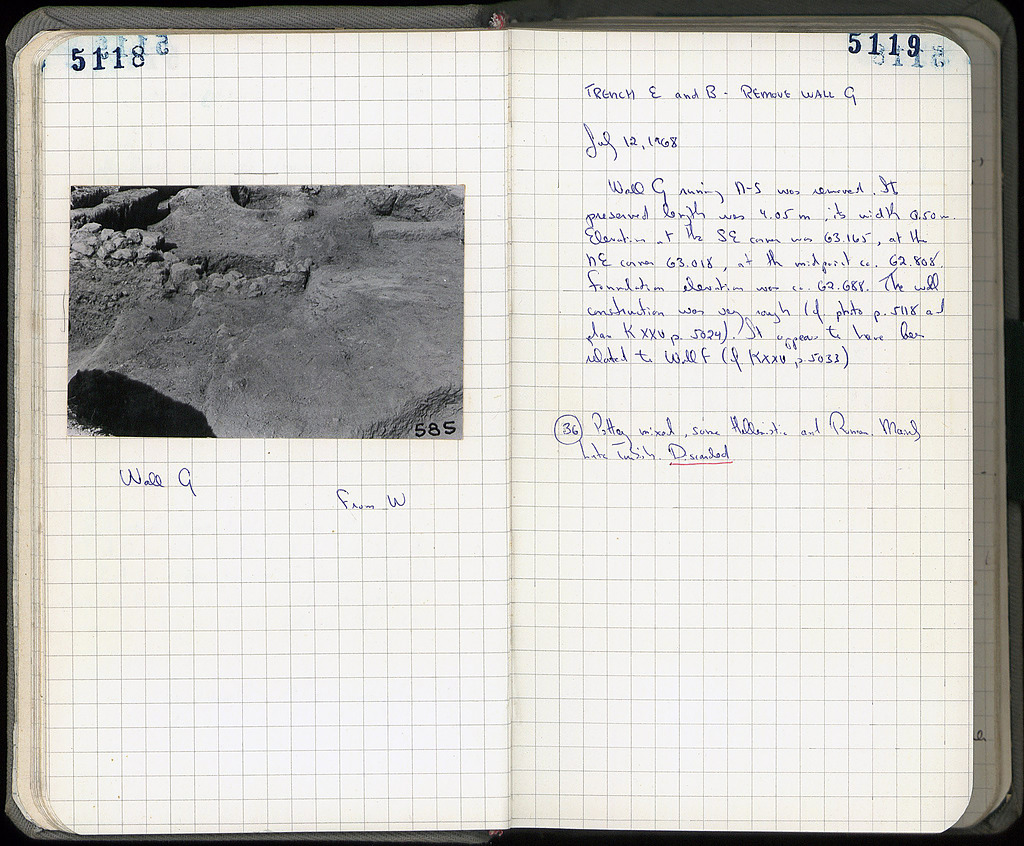 5118
585
Wall G
From W
5119
TRENCH E and B - REMOVE WALL G
July 12, 1968
Wall G running N-S was removed. Its
preserved length was 4.05 m, its width 0.50 m.
Elevation at the SE corner was 63.165, at the
NE corner 63.018, at the midpoint ca. 62.808.
Foundation elevation was ca. 62.688. The wall
construction was very rough (cf photo p. 5118 and
plan KXXV p. 5024). It appears to have been
related to Wall F (cf KXXV p. 5033)
36 Pottery mixed, some Hellenistic and Roman. Mainly
Late Discarded